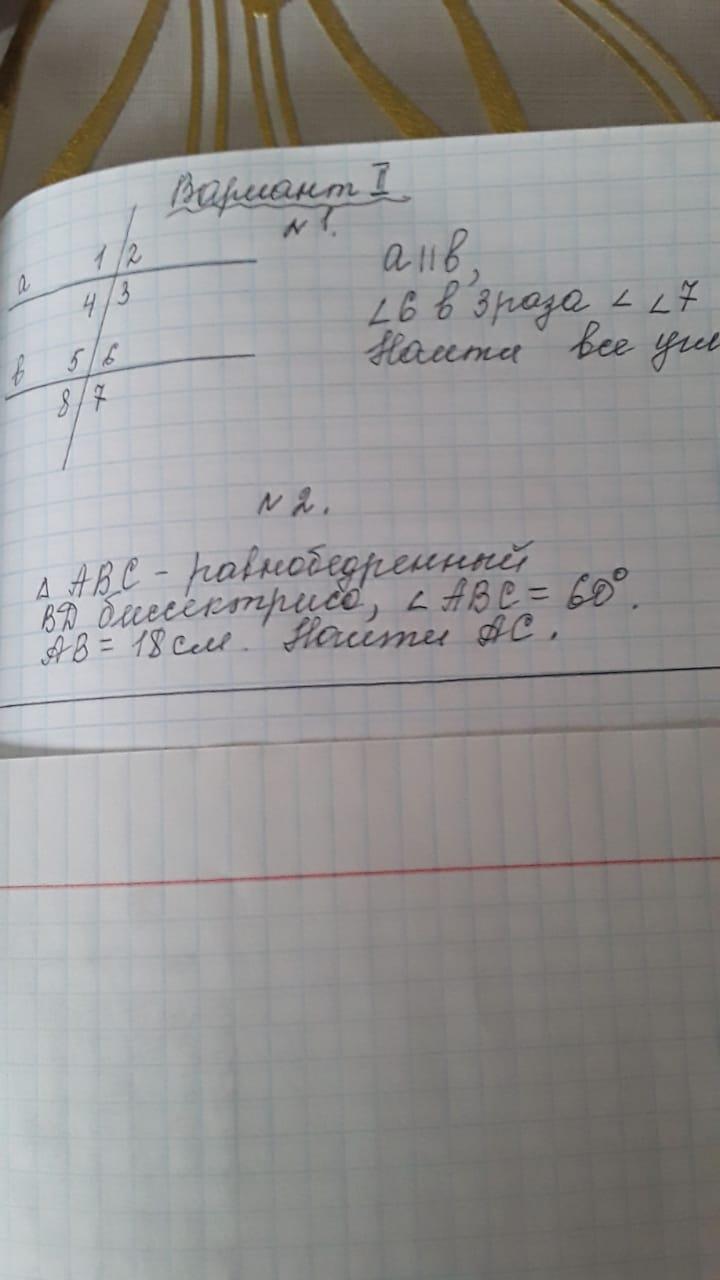 Вариант II
N 1.
1 2
a
4 3
a || b,
∠6 в 3 раза < ∠7
Найти все угл
5 6
в
8 7
N 2.
△ ABC - равнобедренный
BD биссектриса, ∠ ABC = 60°.
AB = 18 см. Найти AC.